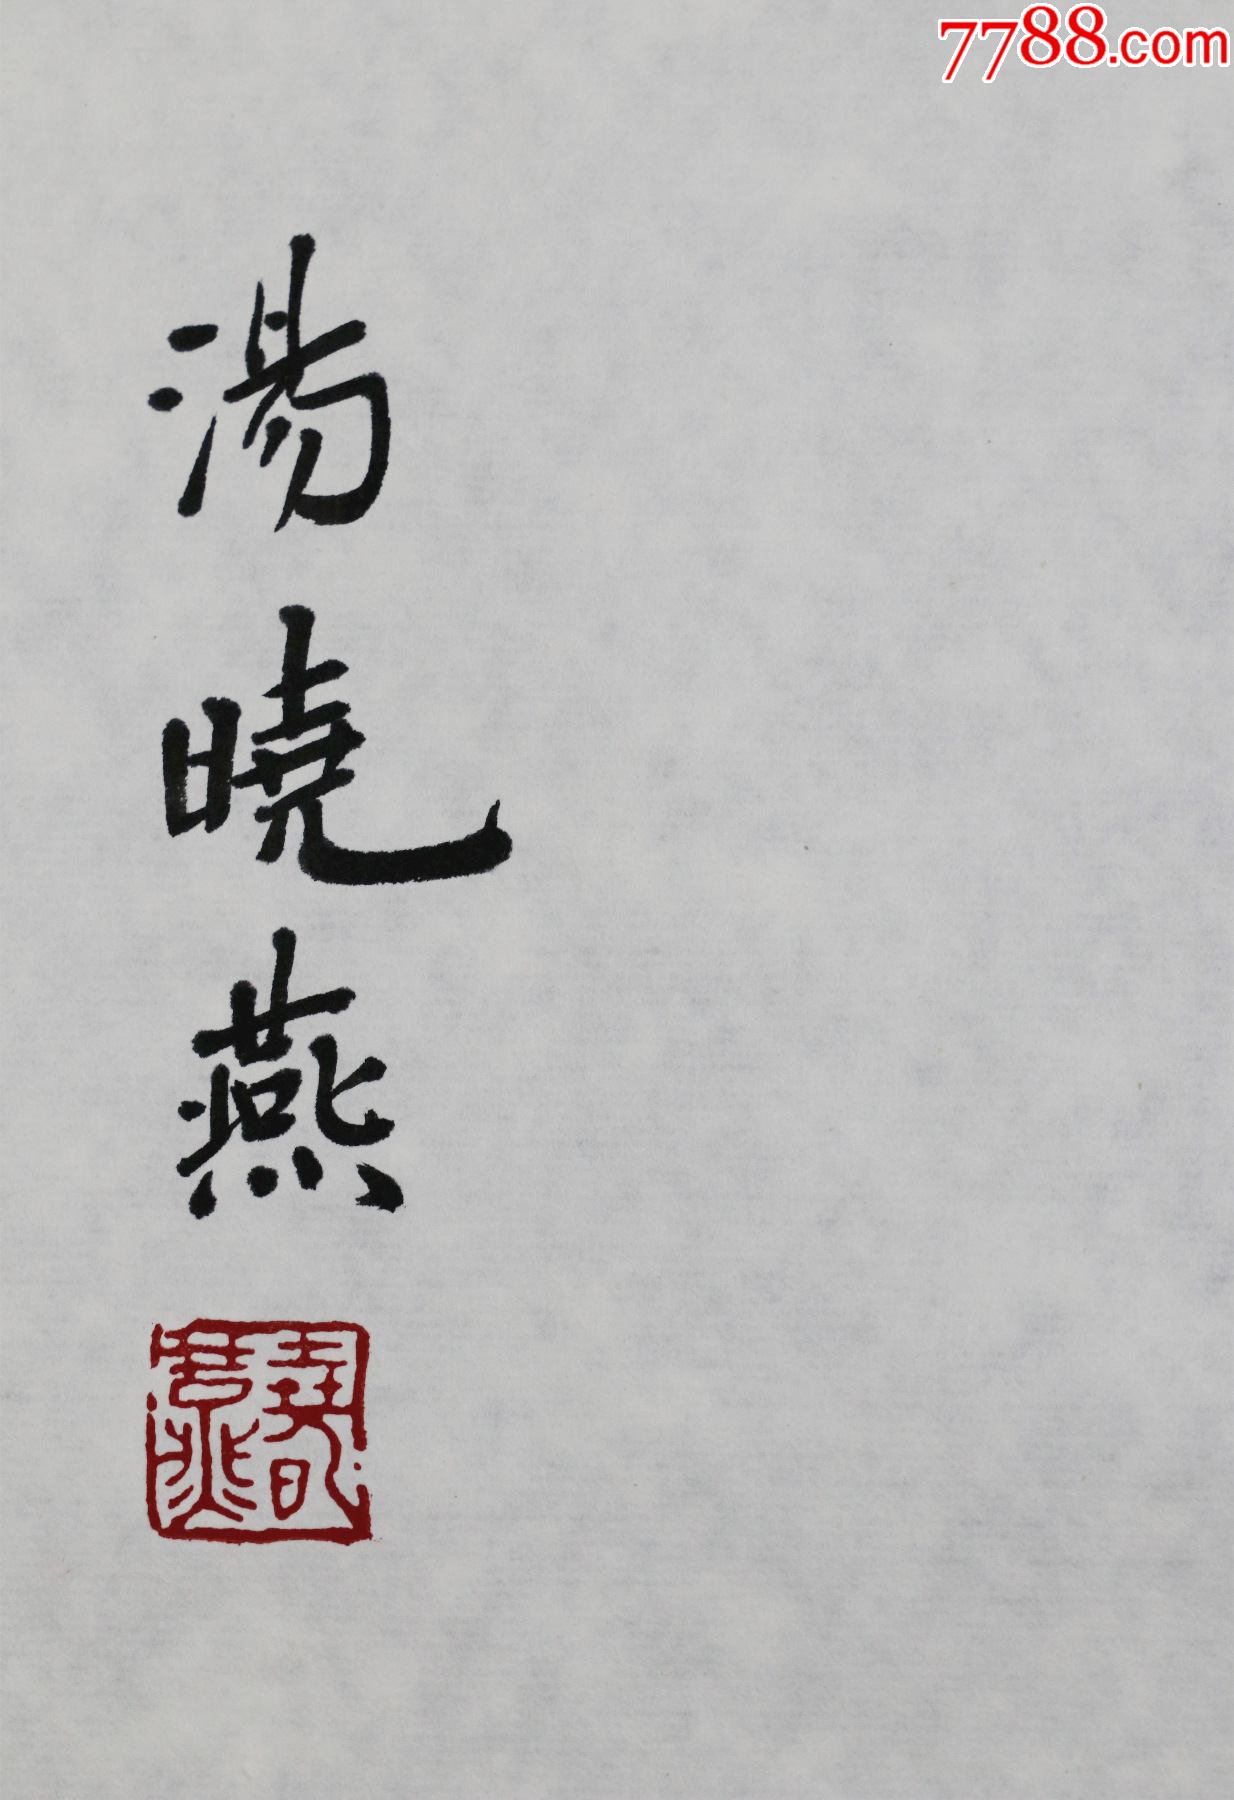 7788.com
湯曉燕
曉燕